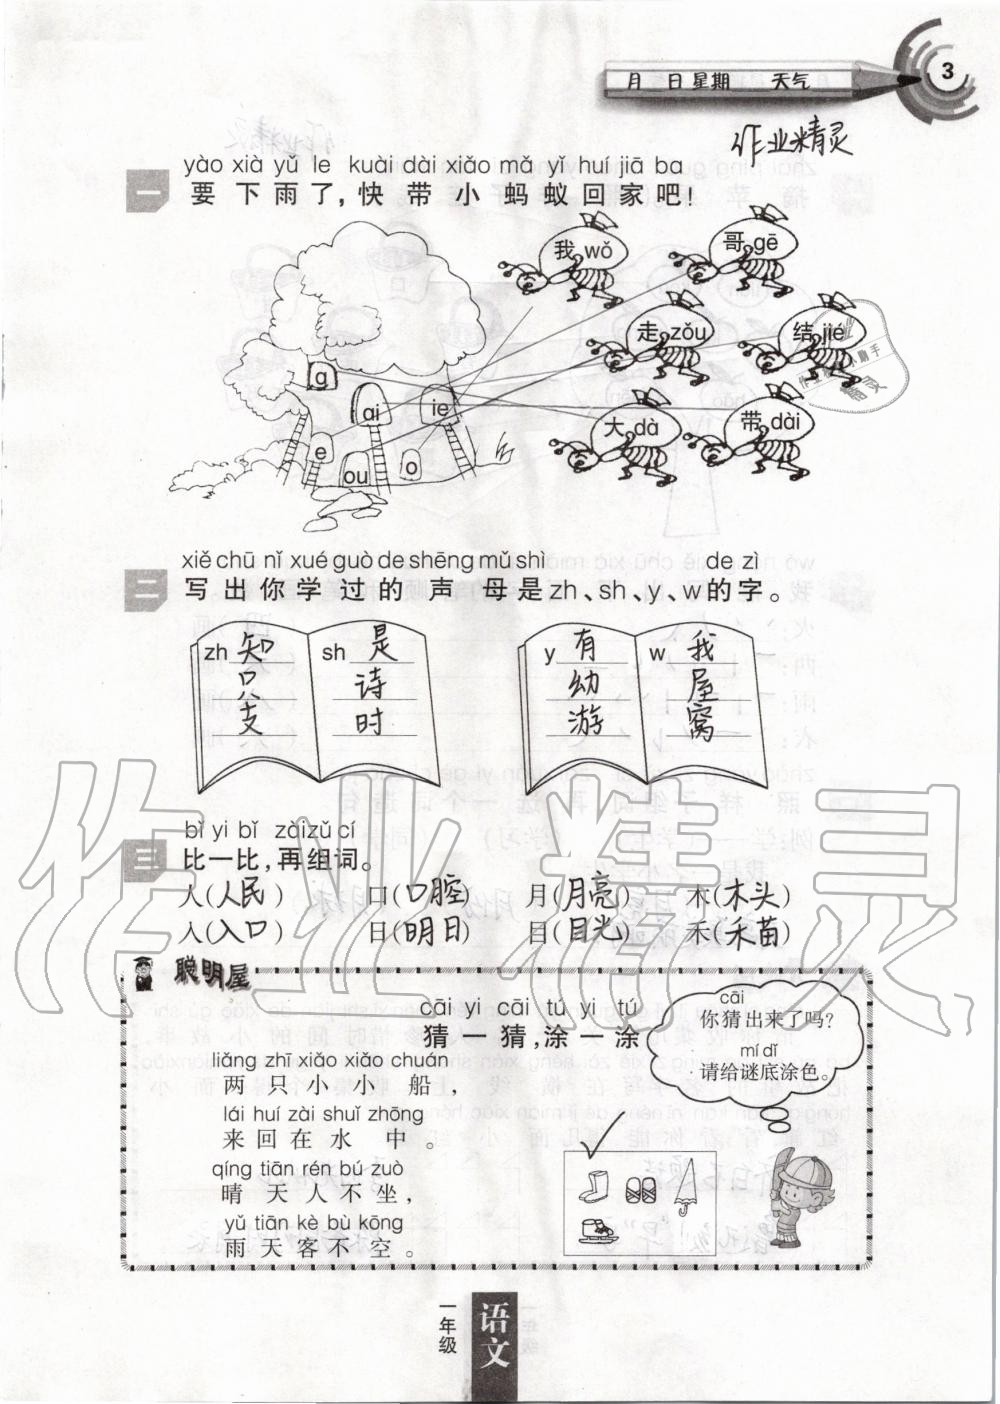 3
月 日 星期 天气
作业精灵
yào xià yǔ le kuài dài xiǎo mǎ yǐ huí jiā ba
一 要下雨了,快带小蚂蚁回家吧!
我 wǒ 哥 gē
走 zǒu 结 jié
大 dà 带 dài
ɑ ai ie
e ou o
xiě chū nǐ xué guò de shēng mǔ shì de zì
二 写出你学过的声母是 zh、sh、y、w的字。
zh 知 sh 是 y 有 w 我
只 诗 幼 屋
支 时 游 窝
bǐ yi bǐ zài zǔ cí
三 比一比,再组词。
人(人民) 口(口腔) 月(月亮) 木(木头)
入(入口) 日(明日) 目(目光) 禾(禾苗)
聪明屋
cāi yi cāi tú yi tú
猜一猜,涂一涂
liǎng zhī xiǎo xiǎo chuán
两只小小船,
lái huí zài shuǐ zhōng
来回在水中。
qíng tiān rén bú zuò
晴天人不坐,
yǔ tiān kè bù kōng
雨天客不空。
cāi
你猜出来了吗?
mí dǐ
请给谜底涂色。
一年级
语文
作业精灵